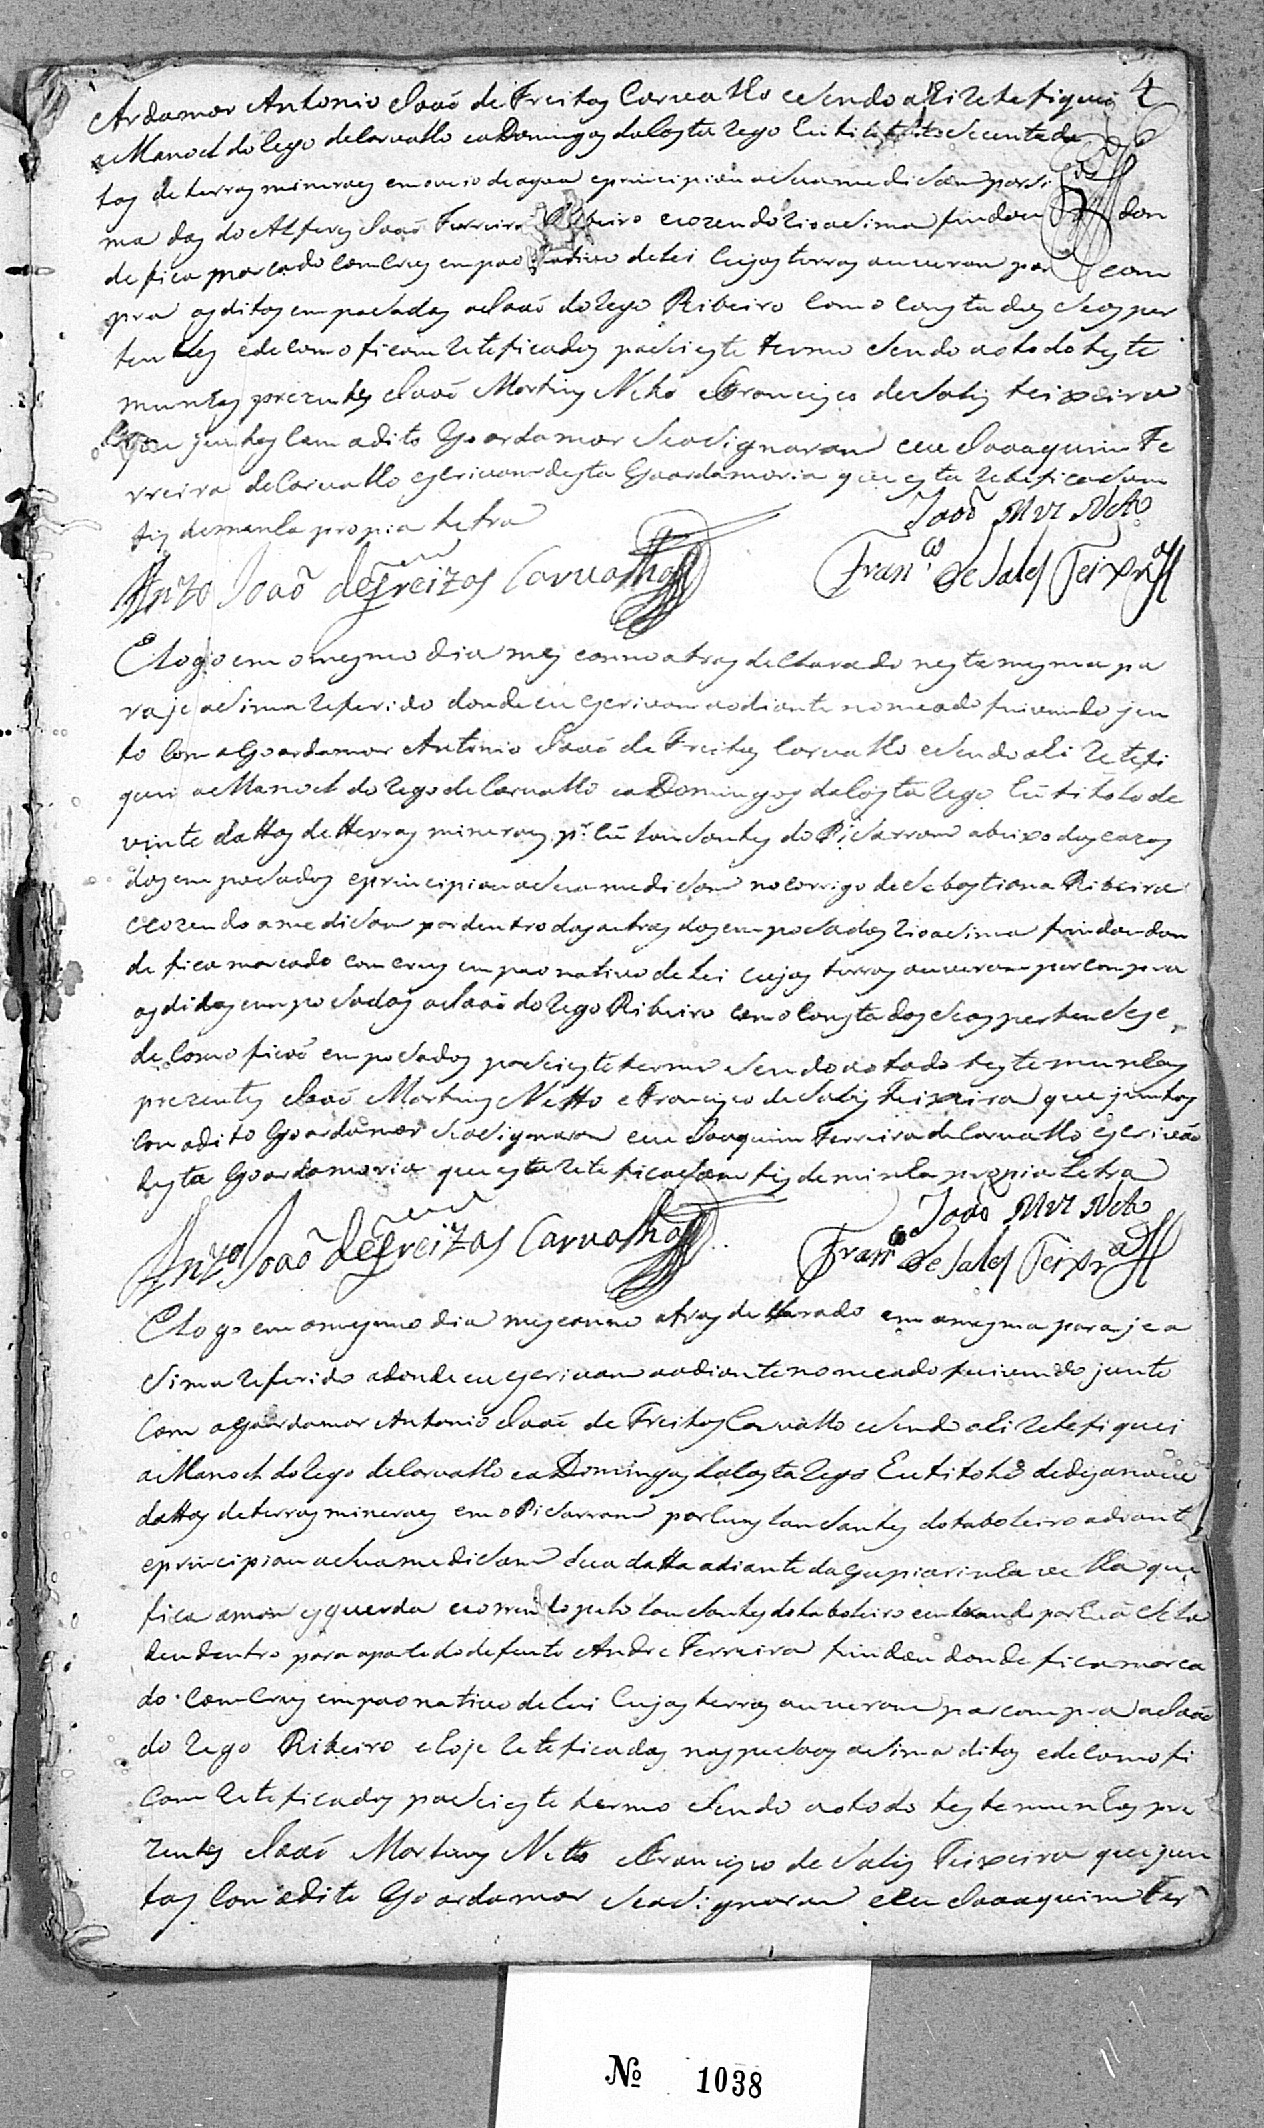 4
Ardamor Antonio Joaõ de Freitas Carvalho e sendo ahi Retefiquei
a Manoel do Rego de Carvalho e a Domingos da Costa Rego hu titolo de cento e da
tas de terras mineraes em o veio de agoa e principiou a sua medisam por si
ma das do Alferes Joaõ Ferreira Ribeiro e corendo rio asima findou don
de fica marcado com Crus em pao nativo de Lei Cujas terras ouveram por com
pra os ditos emposados a Joaõ do Rego Ribeiro Como Consta dos seos per
tenses e de como ficam Reteficados pasei este termo sendo a todo teste
munhas prezentes Joaõ Martins Neto e Francisco de Salis teixeira
que juntos Com a dito Goardamor se asignaram e eu Joaquim Fe
rreira de Carvalho escrivam desta Goardamoria que esta reteficasam
fis de minha propia letra
Joaõ Miz Neto
Anto Joaõ de Freizas Carvalho
Franco de Sales Teixra
E logo em o mesmo dia mes e anno atras declarado nesta mesma pa
raje asima referido donde eu escrivam ao diante nomeado fui vindo jun
to Com a Goardamor Antonio Joaõ de Freitas Carvalho e sendo ahi Retefi
quei a Manoel do Rego de Carvalho e a Domingos da Costa Rego hu titolo de
vinte dattas de tterras mineraes pr hu tansantes do Pisarram abaixo das cazas
dos em posados e principiou a sua medisam no corrigo de Sebastiana Ribeira
e corendo a medisam por dentro das outras dos em posados rio asima findou don
de fica marcado com crus em pao nativo de Lei cujas terras ouveram por compra
os ditos em posados a Joaõ do Rego Ribeiro como consta dos seos pertenses e
de Como ficaõ em posados pasei este termo sendo a todo testemunhas
prezentes Joaõ Martins Netto e Francisco de Salis Teixeira que juntos
Con a dito Goardamor se asignaram e eu Joaquim Ferreira de Carvalho escrivão
desta Goardamoria que esta reteficasam fis de minha propia Letra
Joaõ Miz Neto
Anto Joaõ de Freizas Carvalho
Franco de Sales Teixra
E logo em o mesmo dia mes e anno atras declarado em a mesma paraje a
sima referido adonde eu escrivam ao diante nomeado fui vindo junto
Com a goardamor Antonio Joaõ de Freitas Carvalho e sendo ahi Retefiquei
a Manoel do Rego de Carvalho e a Domingos da Costa Rego hu titolo de desanove
dattas de terras mineraes em o Pisarram por huns tansantes do taboleiro adiante
e principiou a sua medisam sua datta adiante da Gupiarinha velha que
fica a mam esquerda e corendo pelo tansantes do taboleiro entrando por
dendentro para a parte do defunto Andre Ferreira findou donde fica marca
do Com Crus em pao nativo de Lei Cujas terras ouveram por compra a Joaõ
do Rego Ribeiro e hoje reteficadas nas pesoas asima ditas e de Como fi
Cam Reteficados pasei este termo sendo a todo testemunhas pre
zentes Joaõ Martins Netto e Francisco de Salis Teixeira que jun
tos Com a dito Goardamor se asignaram e eu Joaquim Fer
Nº 1038